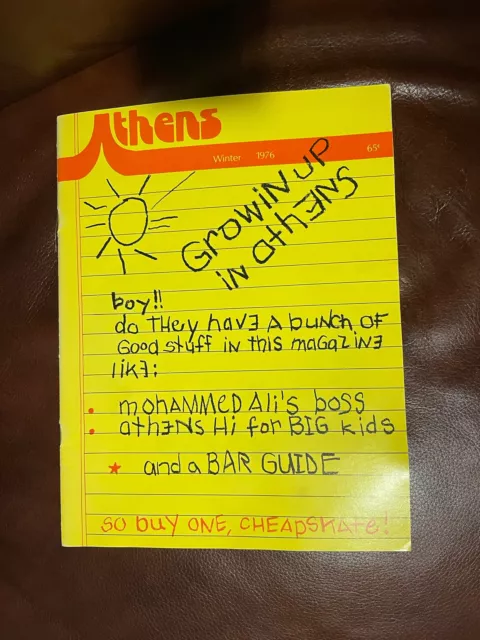 Athens
Winter 1976 65¢
GROWIN UP
iN athƎNS
boy!!
do THey havƎ A bUNCh OF
GOOD stuff iN this maGaZiNƎ
likƎ:
• mohAMMED Ali's boss
• athƎNs Hi for BIG kids
★ and a BAR GUIDE
SO buy ONE, CHEApskate!